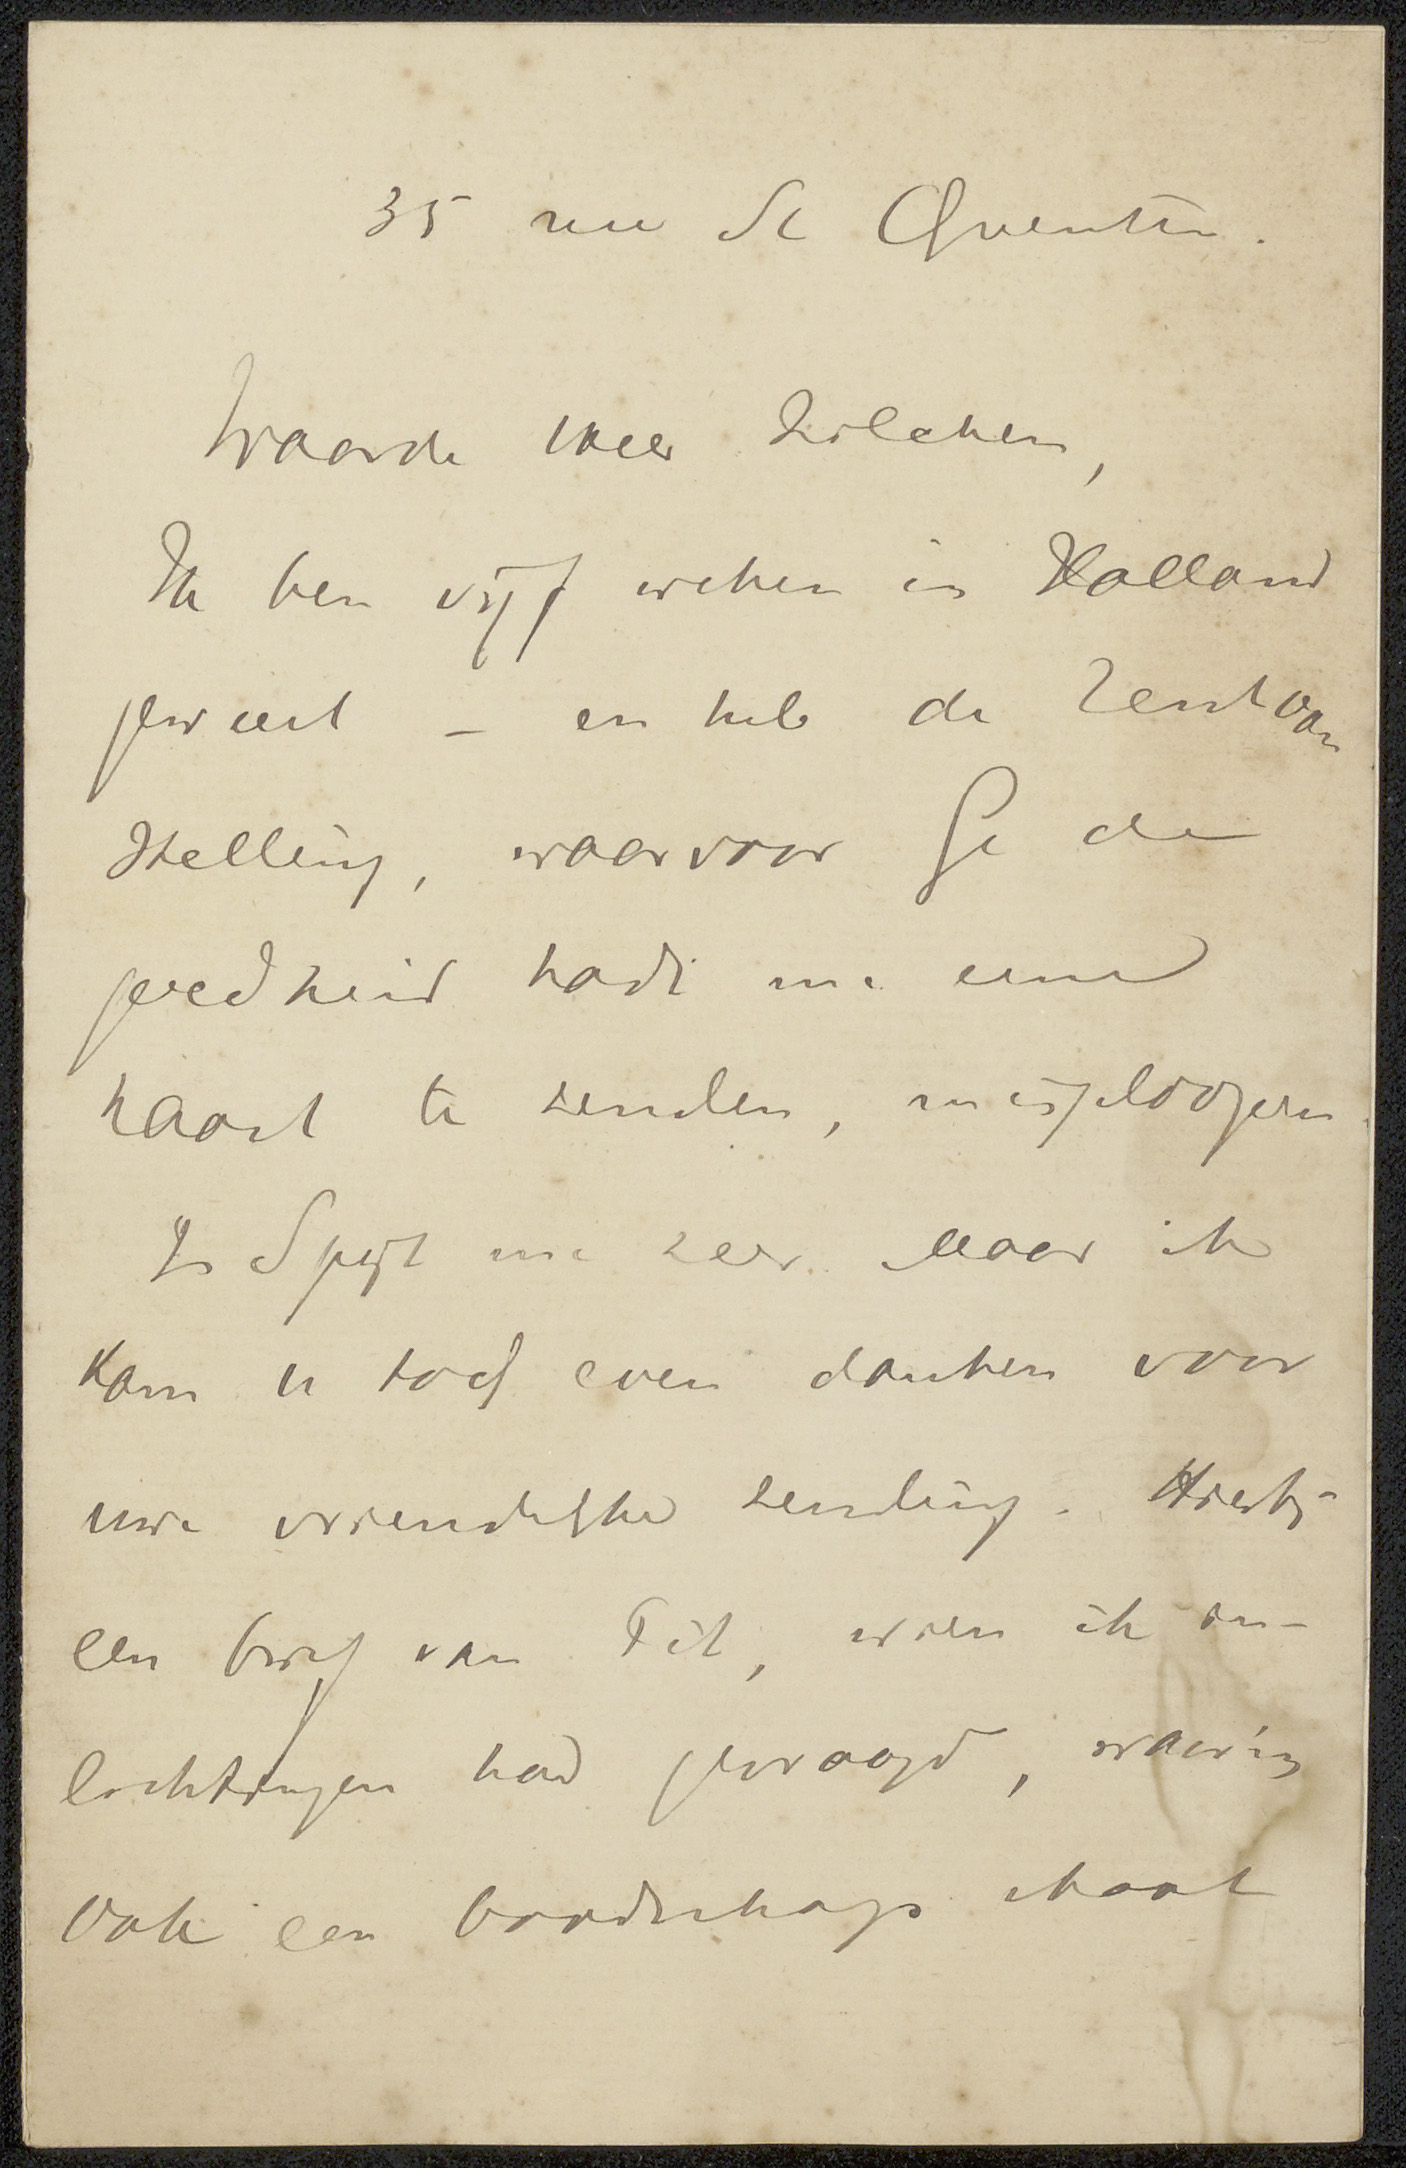 35 rue St Quentin.
Waarde heer Zilcken,
Ik ben vijf weken in Holland
geweest – en heb de Tentoon
stelling, waarvoor Ge de
goedheid hadt me eene
kaart te zenden, misgeloopen.
Spijt me zeer. Maar ik
kom u toch even danken voor
uwe vriendelijke zending. Hierbij
een brief van Pit, wien ik in-
lichtingen had gevraagd, waarin
ook een boodschap staat